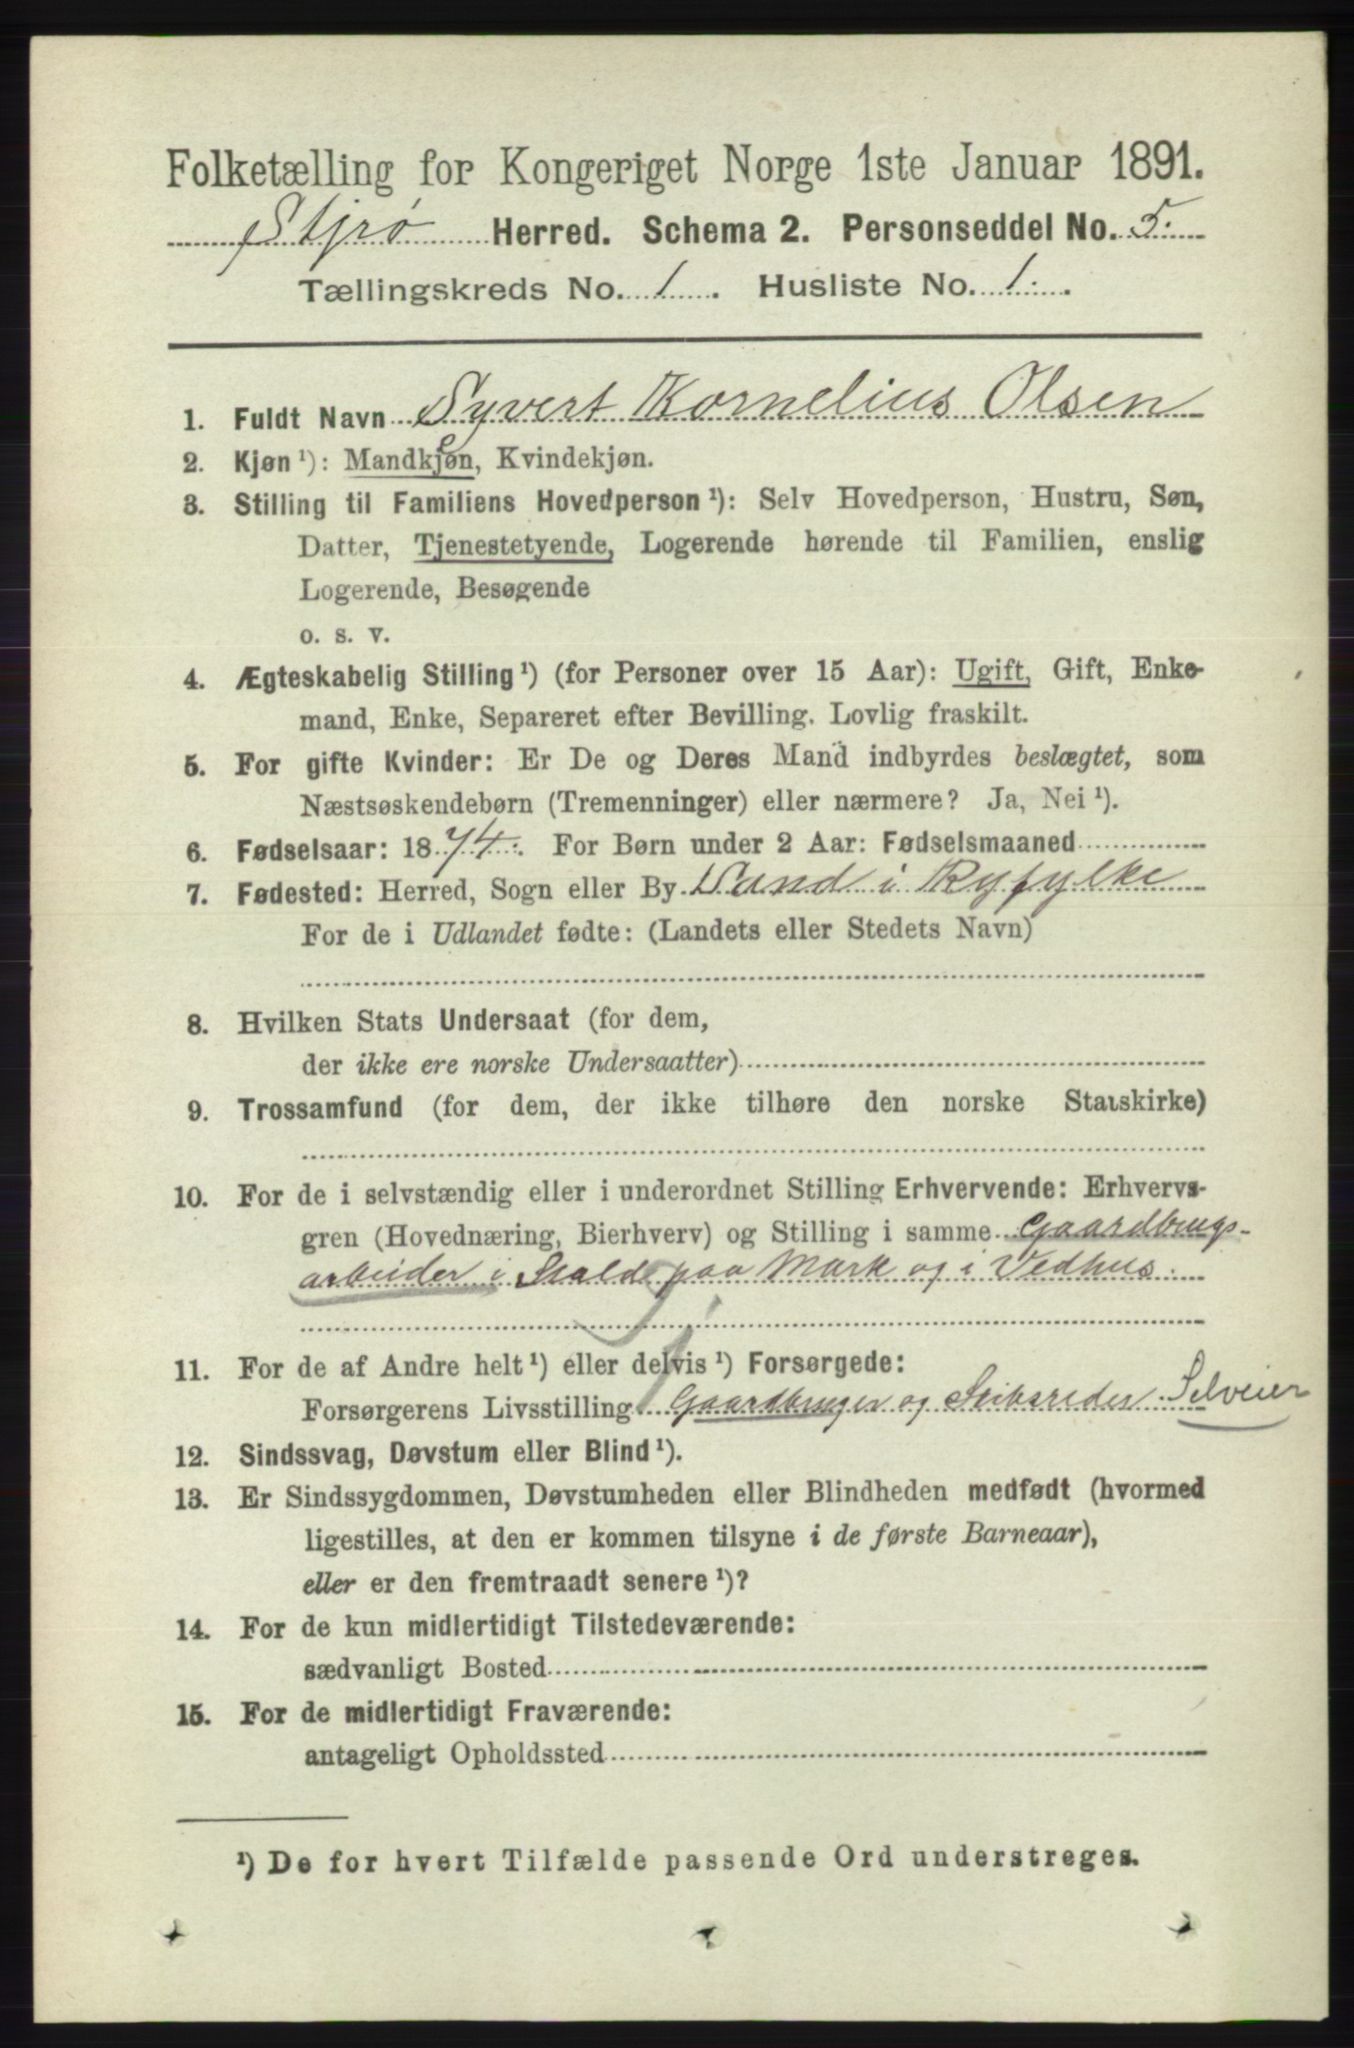 Folketælling for Kongeriget Norge 1ste Januar 1891.
Stjrø Herred. Schema 2. Personseddel No. 5.
Tællingskreds No. 1. Husliste No. 1.
1. Fuldt Navn Syvert Kornelius Olsen
2. Kjøn ¹): Mandkjøn, Kvindekjøn.
3. Stilling til Familiens Hovedperson ¹): Selv Hovedperson, Hustru, Søn,
Datter, Tjenestetyende, Logerende hørende til Familien, enslig
Logerende, Besøgende
o. s. v.
4. Ægteskabelig Stilling ¹) (for Personer over 15 Aar): Ugift, Gift, Enke-
mand, Enke, Separeret efter Bevilling. Lovlig fraskilt.
5. For gifte Kvinder: Er De og Deres Mand indbyrdes beslægtet, som
Næstsøskendebørn (Tremenninger) eller nærmere? Ja, Nei ¹).
6. Fødselsaar: 1874. For Børn under 2 Aar: Fødselsmaaned
7. Fødested: Herred, Sogn eller By Sand i Ryfylke
For de i Udlandet fødte: (Landets eller Stedets Navn)
8. Hvilken Stats Undersaat (for dem,
der ikke ere norske Undersaatter)
9. Trossamfund (for dem, der ikke tilhøre den norske Statskirke)
10. For de i selvstændig eller i underordnet Stilling Erhvervende: Erhvervs-
gren (Hovednæring, Bierhverv) og Stilling i samme Gaardbrugs-
arbeider i Stald paa Mark og i Vedhus.
11. For de af Andre helt ¹) eller delvis ¹) Forsørgede:
Forsørgerens Livsstilling Gaardbruger og Skibsreder Selveier
12. Sindssvag, Døvstum eller Blind ¹).
13. Er Sindssygdommen, Døvstumheden eller Blindheden medfødt (hvormed
ligestilles, at den er kommen tilsyne i de første Barneaar),
eller er den fremtraadt senere ¹)?
14. For de kun midlertidigt Tilstedeværende:
sædvanligt Bosted
15. For de midlertidigt Fraværende:
antageligt Opholdssted
¹) De for hvert Tilfælde passende Ord understreges.